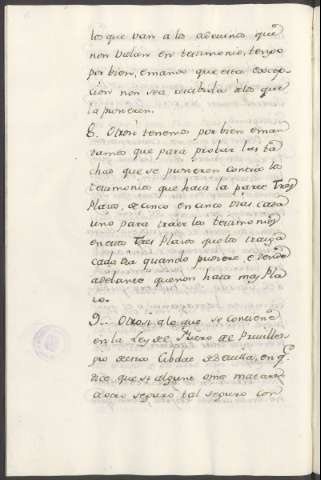 los que van a los adevinos que
non valan en testimonio, tengo
por bien, e mando que esta excep-
cion non sea recebida delos que
la pusieren.
8. Otrosi tenemos por bien e man-
damos que para probar las ta-
chas que se pusieren contra los
testimonios que haia la parte Tres
Plazos, de cinco en cinco dias cada
uno para traer los testimonios
en estos Tres Plazos que los traiga
cada dia quando pusiere e dende
adelante que non haia mas Pla-
zo.
9. Otrosi a lo que se contiene
en la Ley de Fuero de Preville-
gio de esta Cibdat de Sevilla, en q.
dice que si alguno ome matare
a otro seguro, tal seguro con